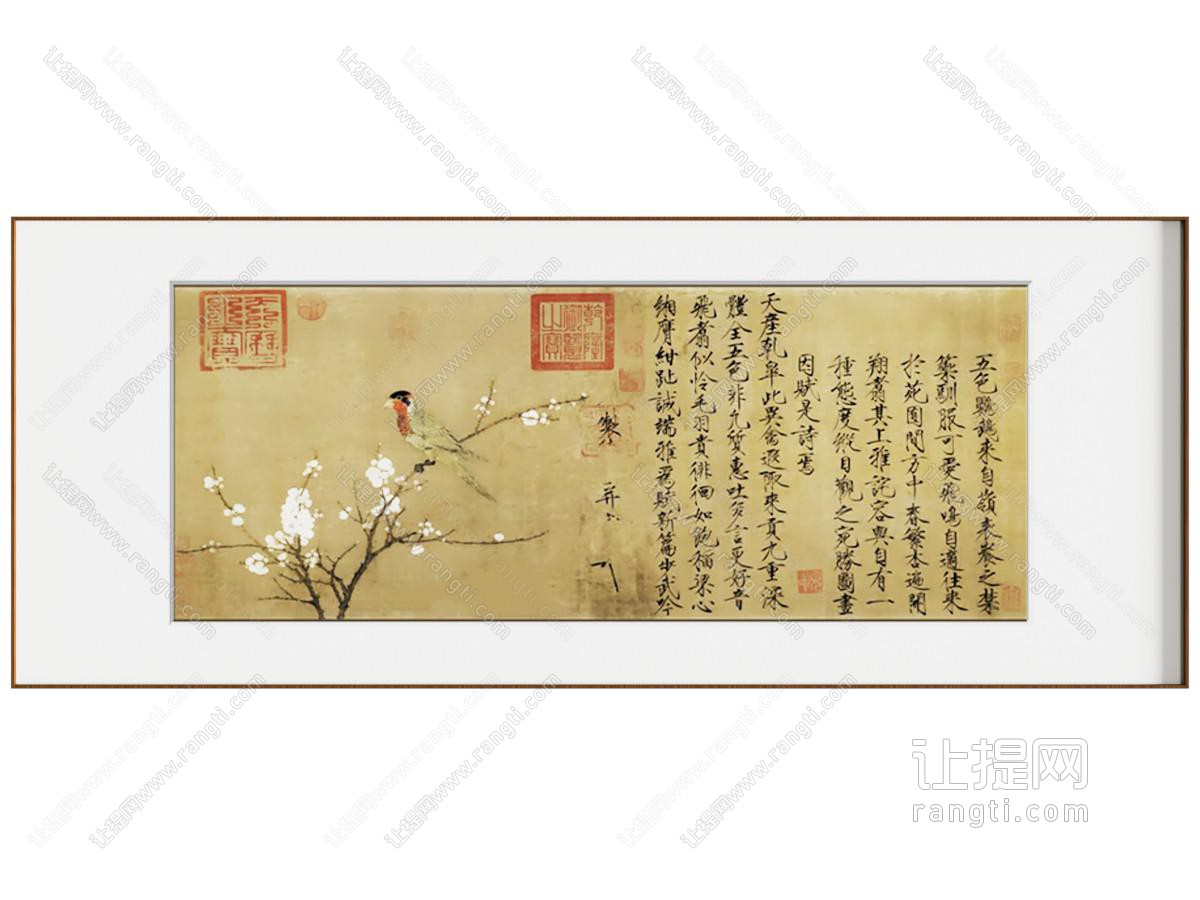 五色鸚鵡來自嶺表養之禁
籞馴服可愛飛鳴自適往來
於苑囿間方中春繁杏遍開
翔翥其上雅詫容與自有一
種態度縱目觀之宛勝圖畫
因賦是詩焉
天產乾皋此異禽遐陬來貢九重深
體全五色非凡質惠吐多言更好音
飛翥似怜毛羽貴徘徊如飽稻粱心
緗膺紺趾誠端雅為賦新篇步武吟
製
并
让提网
rangti.com
让提网www.rangti.com